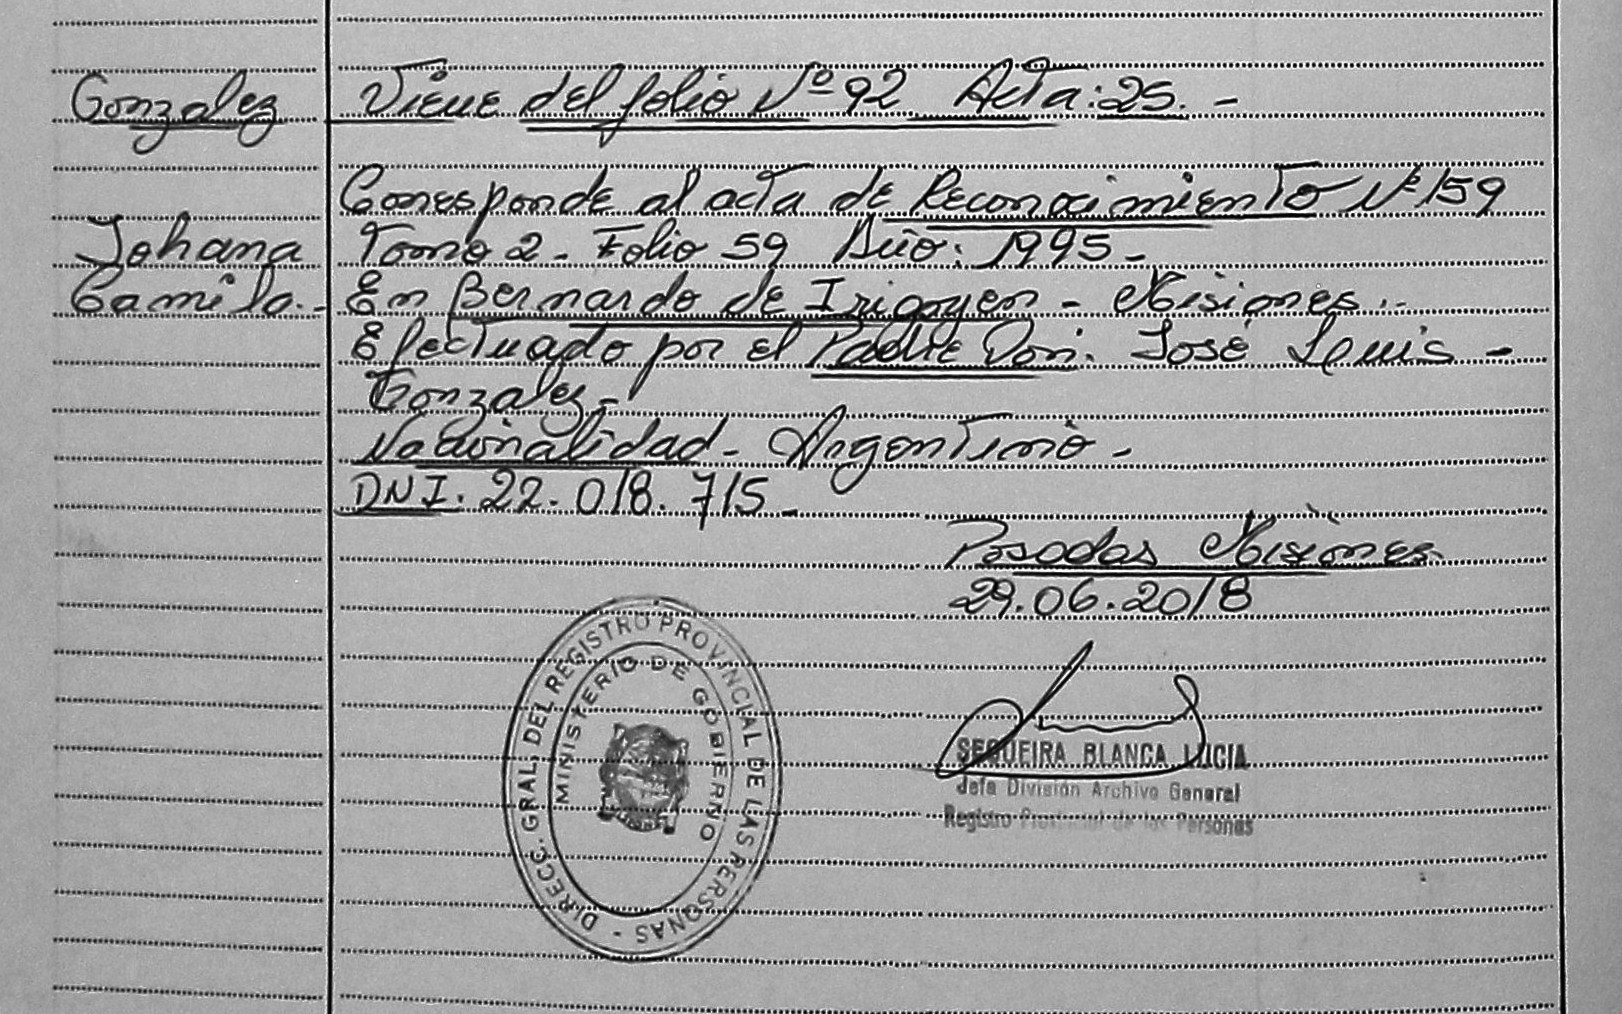 Gonzalez
Viene del folio Nº 92 Acta: 25. -
Corresponde al acta de Reconocimiento Nº 159
Johana
Tomo 2 - Folio 59 Año: 1995 -
Camila. -
En Bernardo de Irigoyen - Misiones. -
Efectuado por el Padre Don. José Luis -
Gonzalez -
Nacionalidad - Argentino -
DNI. 22.018.715 -
Posadas Misiones
29.06.2018
DIRECC. GRAL. DEL REGISTRO PROVINCIAL DE LAS PERSONAS -
MINISTERIO DE GOBIERNO
SEQUEIRA BLANCA LUCIA
Jefa División Archivo General
Registro Provincial de las Personas